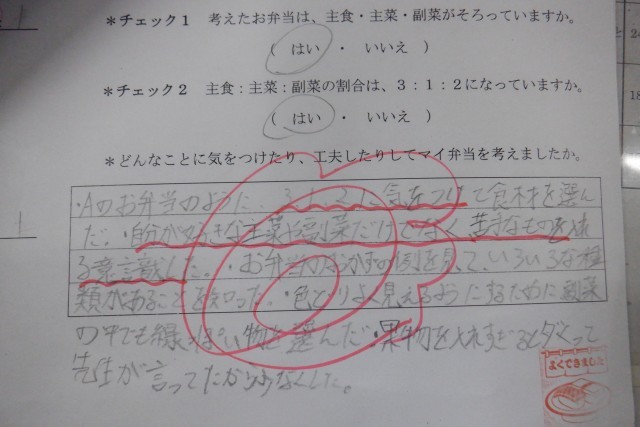 ＊チェック１ 考えたお弁当は、主食・主菜・副菜がそろっていますか。
（ はい ・ いいえ ）
＊チェック２ 主食：主菜：副菜の割合は、３：１：２になっていますか。
（ はい ・ いいえ ）
＊どんなことに気をつけたり、工夫したりしてマイ弁当を考えましたか。
・Aのお弁当のように、3:1:2に気をつけて食材を選ん
だ。・自分が好きな主菜や副菜だけでなく苦手なものを入れ
る意識した。・お弁当のおかずの例を見て、いろいろな種
類があることを知った。・色どりよく見えるようにするために副菜
の中でも緑っぽい物を選んだ・果物を入れすぎるとダメって
先生が言ってたから少なくした。
よくできました